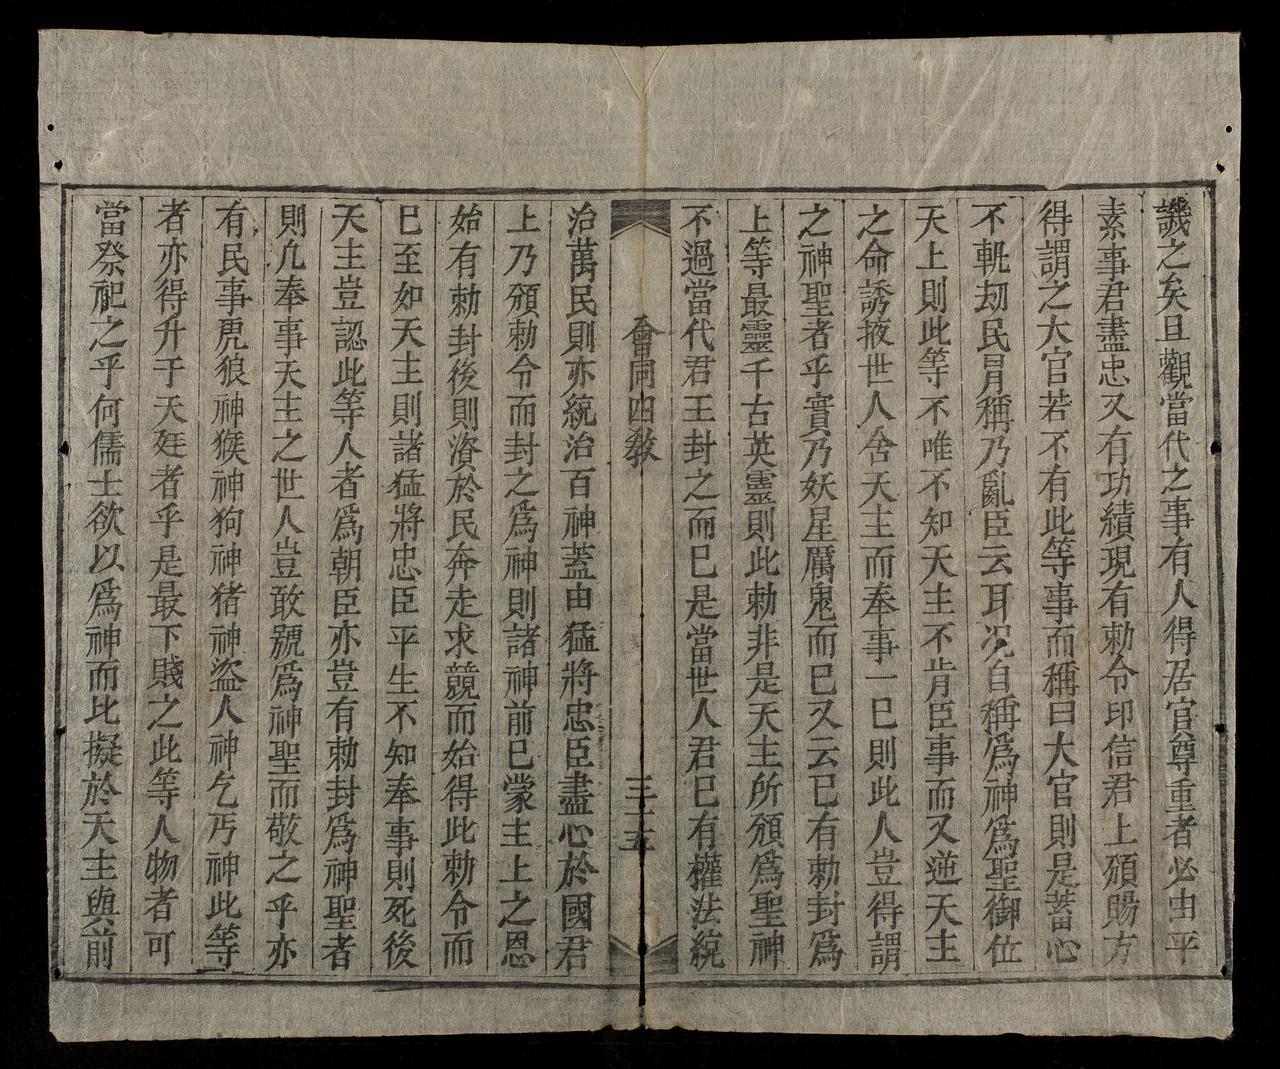 譏之矣且觀當代之事有人得居官尊重者必由平
素事君盡忠又有功績現有勅令印信君上頒賜方
得謂之大官若不有此等事而稱曰大官則是蓄心
不軌刼民冐稱乃亂臣云耳况自稱爲神爲聖御位
天上則此等不唯不知天主不肯臣事而又逆天主
之命誘掖世人舍天主而奉事一巳則此人豈得謂
之神聖者乎實乃妖星厲鬼而巳又云巳有勅封爲
上等最靈千古英靈則此勅非是天主所頒爲聖神
不過當代君王封之而巳是當世人君巳有權法統
會同四教
三十五
治萬民則亦統治百神蓋由猛將忠臣盡心於國君
上乃頒勅令而封之爲神則諸神前巳蒙主上之恩
始有勅封後則資於民奔走求競而始得此勅令而
巳至如天主則諸猛將忠臣平生不知奉事則死後
天主豈認此等人者爲朝臣亦豈有勅封爲神聖者
則凢奉事天主之世人豈敢號爲神聖而敬之乎亦
有民事虎狼神猴神狗神猪神盗人神乞丐神此等
者亦得升于天廷者乎是最下賤之此等人物者可
當祭祀之乎何儒士欲以爲神而比擬於天主與前